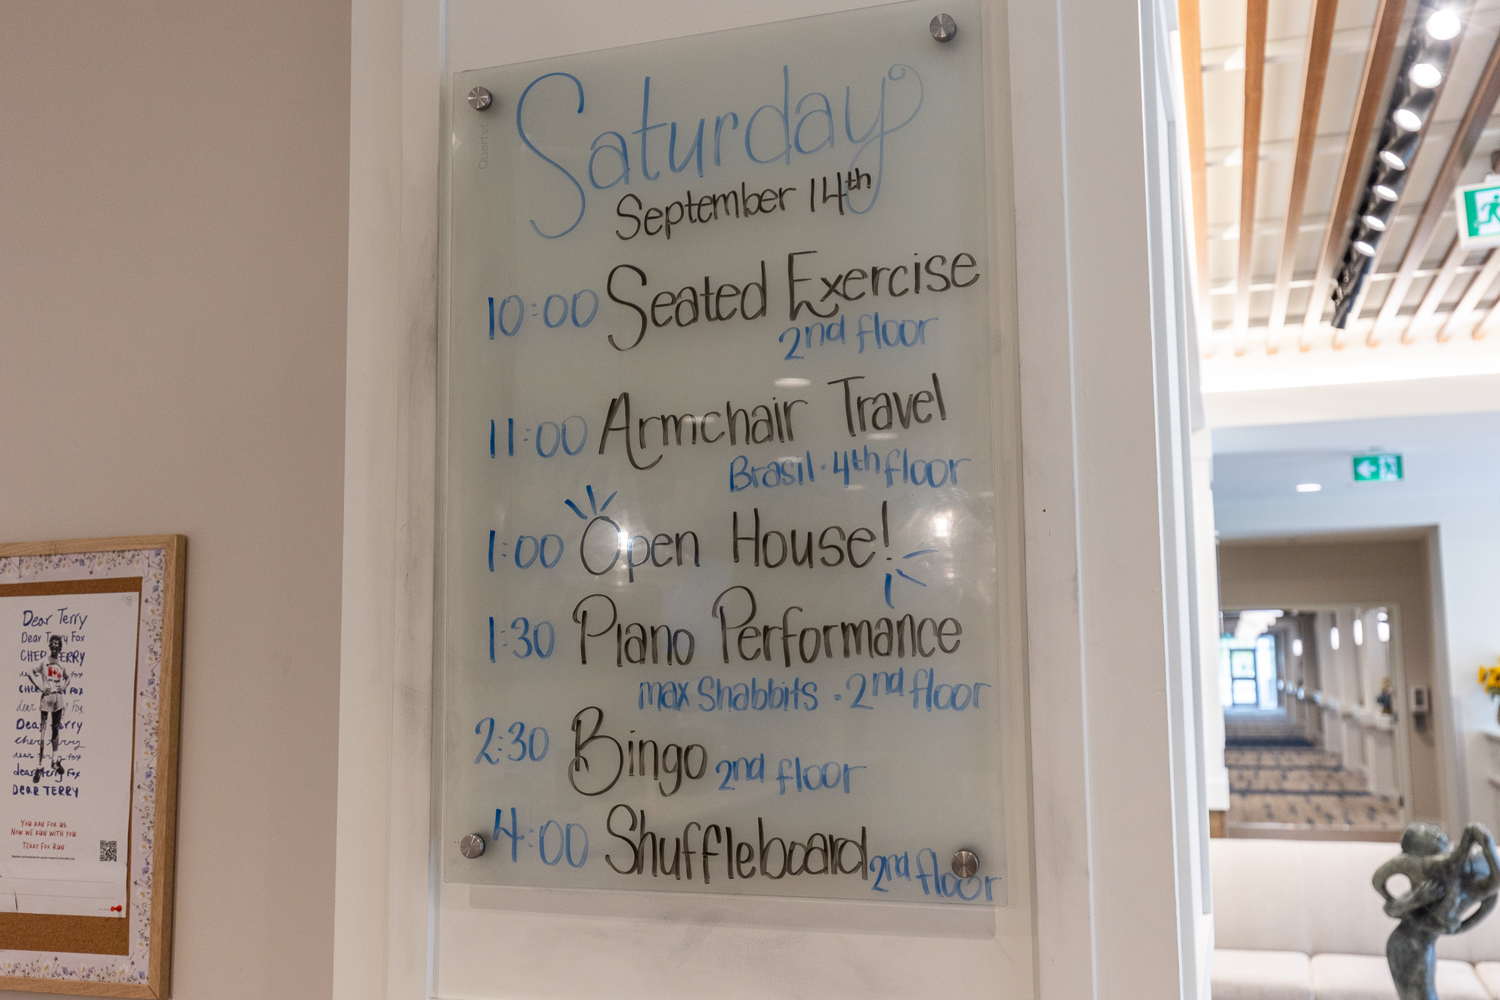 Quartet
Saturday
September 14th
10:00 Seated Exercise
2nd floor
11:00 Armchair Travel
Brasil · 4th floor
1:00 Open House!
1:30 Piano Performance
max Shabbits · 2nd floor
2:30 Bingo 2nd floor
4:00 Shuffleboard 2nd floor
Dear Terry
Dear Terry Fox
CHER TERRY
Dear Terry
dear Terry Fox
DEAR TERRY
YOU RAN FOR US.
NOW WE RUN WITH YOU.
TERRY FOX RUN